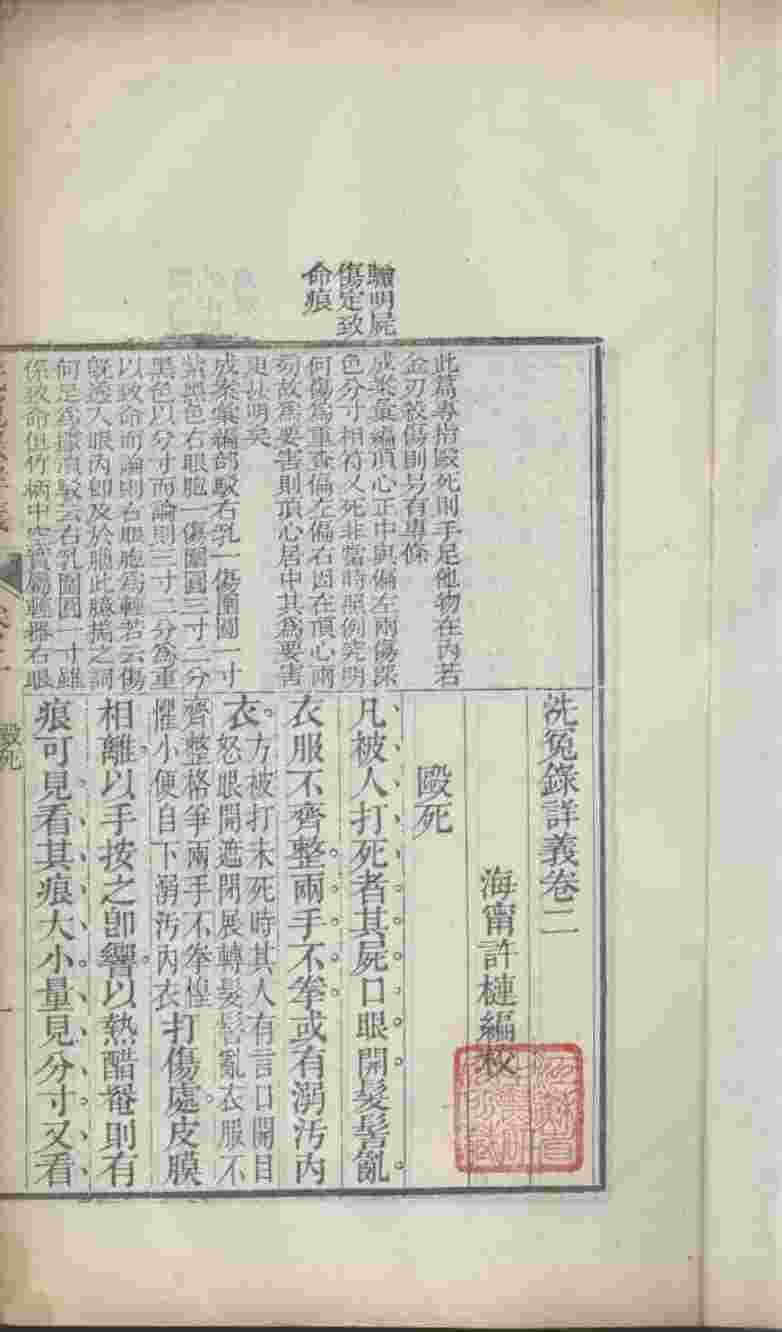 洗冤錄詳義卷二
海甯許槤編校
毆死
凡被人打死者其屍口眼開髮髻亂
衣服不齊整兩手不拳或有溺汚內
衣
方被打未死時其人有言口開目
怒眼開遮閉展轉髮髻亂衣服不
齊整格爭兩手不拳惶
懼小便自下溺汚內衣
打傷處皮膜
相離以手按之卽響以熱醋罨則有
痕可見看其痕大小量見分寸又看
驗明屍
傷定致
命痕
此篇專指毆死則手足他物在內若
金刃殺傷則另有專條
成案彙編頂心正中與偏左兩傷深
色分寸相符又死非當時照例究明
何傷為重查偏左偏右因在頂心兩
旁故為要害則頂心居中其為要害
更甚明矣
成案彙編部駁右乳一傷圍圓一寸
紫黑色右眼胞一傷圍圓三寸二分
黑色以分寸而論則三寸二分為重
以致命而論則右眼胞為輕若云傷
旣透入眼內卽及於腦此臆揣之詞
何足為據演駁云右乳圍圓一寸雖
係致命但竹柄中空質屬輕器右眼
毆死
一